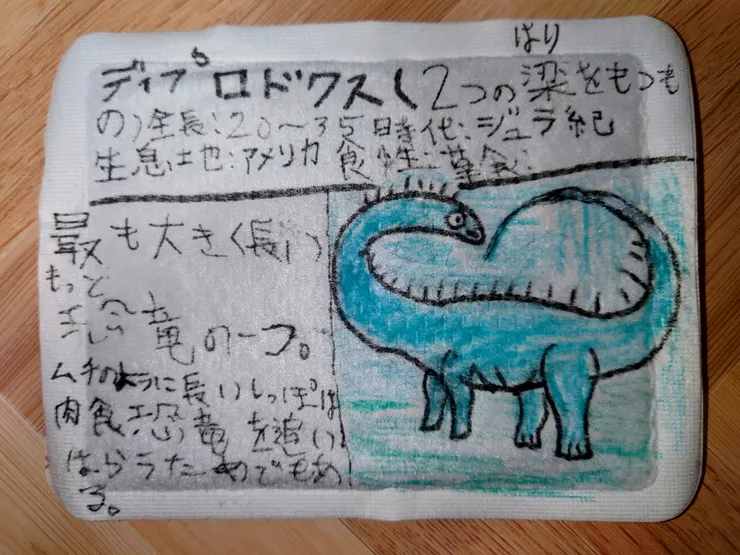 はり
ディプロドクス(2つの梁をもつも
の)全長:20〜35 時代:ジュラ紀
生息土也:アメリカ 食性:草食
最も大きく(長い)
もっと
恐竜の一つ。
ムチのように長いしっぽは
肉食恐竜を追い
はらうためでもあ
る。